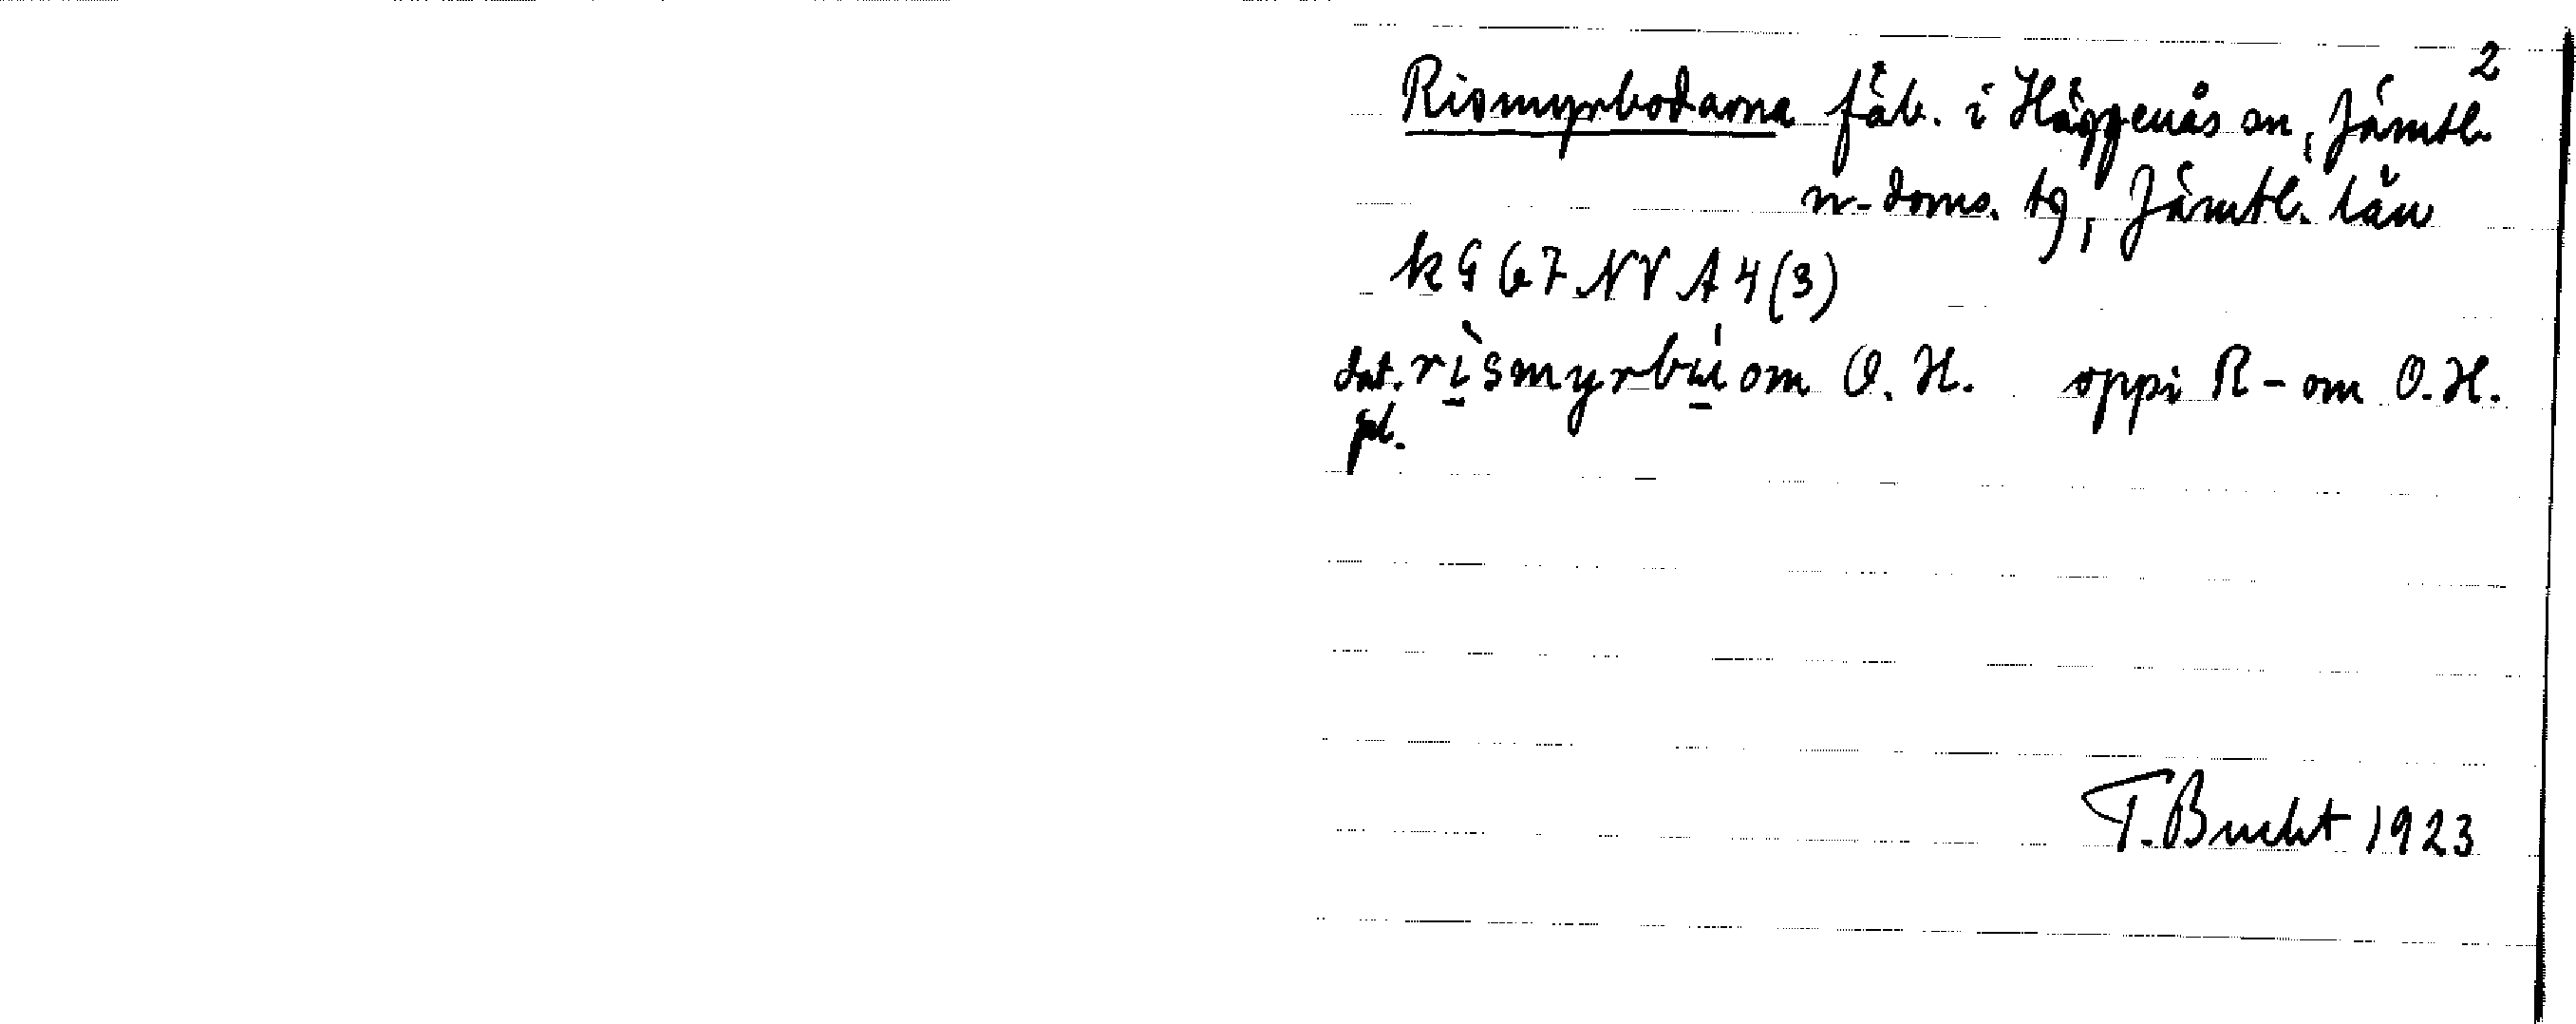 2
Rismyrbodarna fäb. i Häggenås sn, Jämtl.
n. doms. tg, Jämtl. län
k G 67 NV A 4 (3)
dat. rìsmyrbúom O. H. oppi R-om O. H.
pl.
T. Bucht 1923